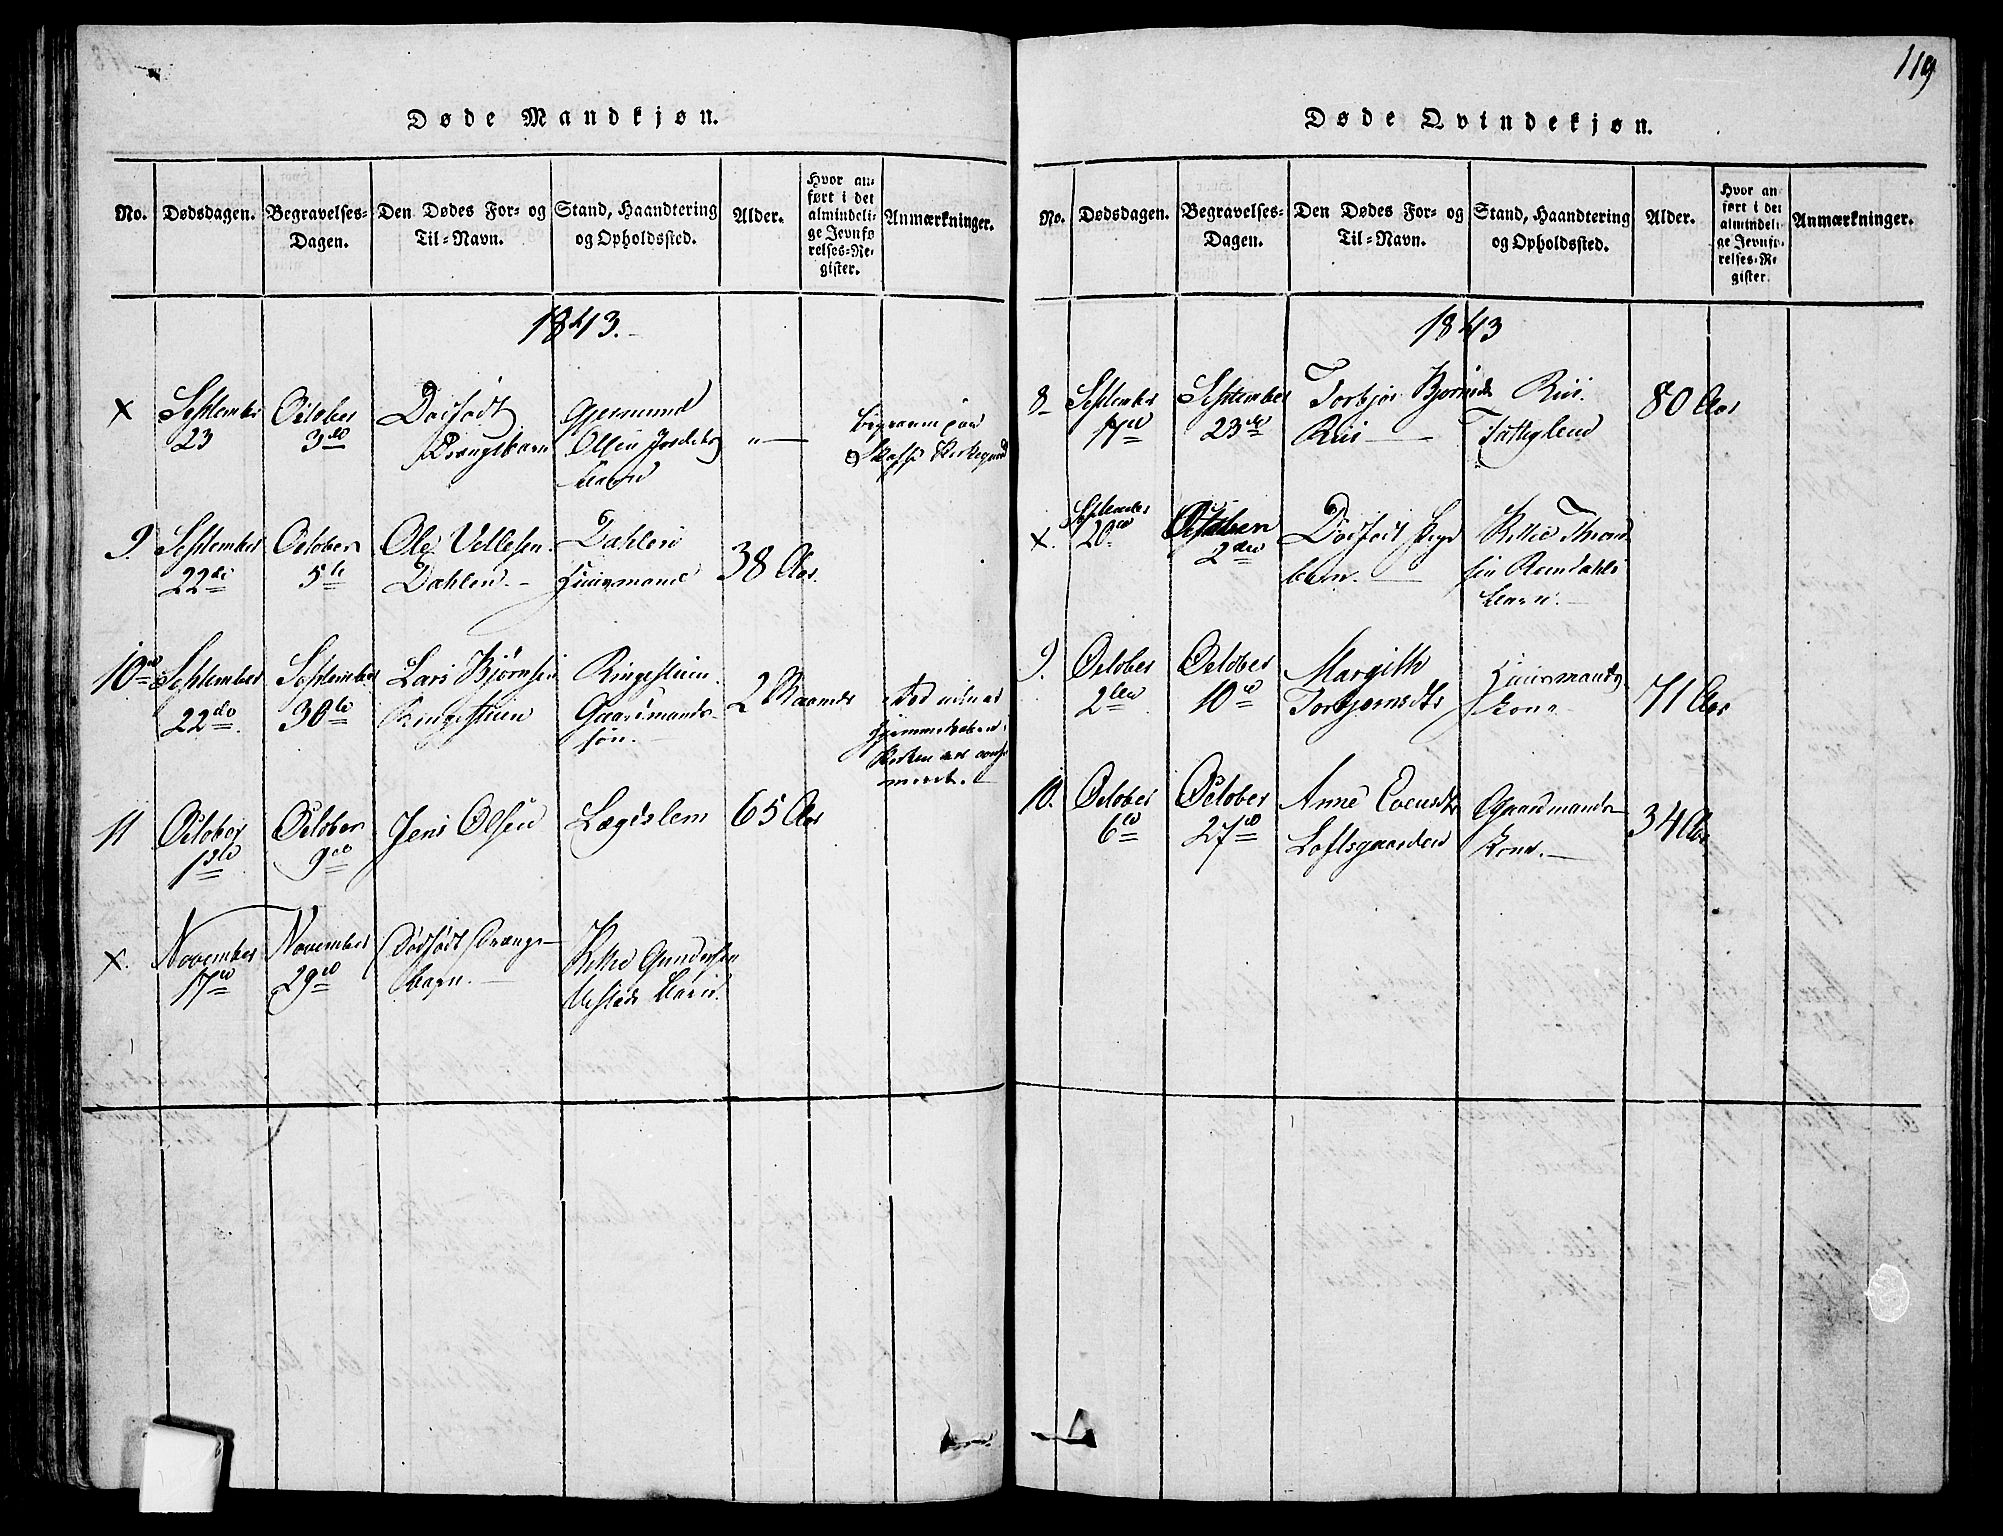 119
Døde Mandkjøn.
No.
Dødsdagen.
Begravelses-
Dagen.
Den Dødes For- og
Til-Navn.
Stand, Haandtering
og Opholdssted.
Alder.
Hvor an-
ført i det
almindeli-
ge Jevnfø
relses-Re-
gister.
Anmærkninger.
1843.
X
September
23
October
3die
Dødfødt
Drengebarn
Gjermund
Olsen
Barn
"
Kirkegaard
9.
September
22de
October
5te
Ole Vellesen
Dahlen.
Dahlen
Huusmand
38 Aar.
10
September
22de.
September
30te
Lars Bjørnsen
Ringesteen
Ringesteen.
Gaardmands-
søn.
2 Maaneder
11
October
1ste
October
9de
Jens Olsen
Lægdslem
65 Aar
X.
November
17de
November
29de
Dødfødt Drenge-
barn.
Kittel Gundersen
Barn.
Døde Qvindekjøn.
No.
Dødsdagen.
Begravelses-
Dagen.
Den Dødes For- og
Til-Navn.
Stand, Haandtering
og Opholdssted.
Alder.
Hvor an-
ført i det
almindeli-
ge Jevnfø-
relses-Re-
gister.
Anmærkninger.
1843
8
September
17de
September
23de
Torbjør Bjørnsdt
Rui
Rui.
Fattiglem
80 Aar
X.
September
20de
October
2den
Dødfødt Pige
barn.
Kittel
Barn.
9.
October
2den
October
10de
Margith
Torbjørnsdtr
Huusmands
Kone
71 Aar
10.
October
6te
October
27de
Anne Evensdtr
Loftsgaarden
Gaardmands
Kone.
34 Aar